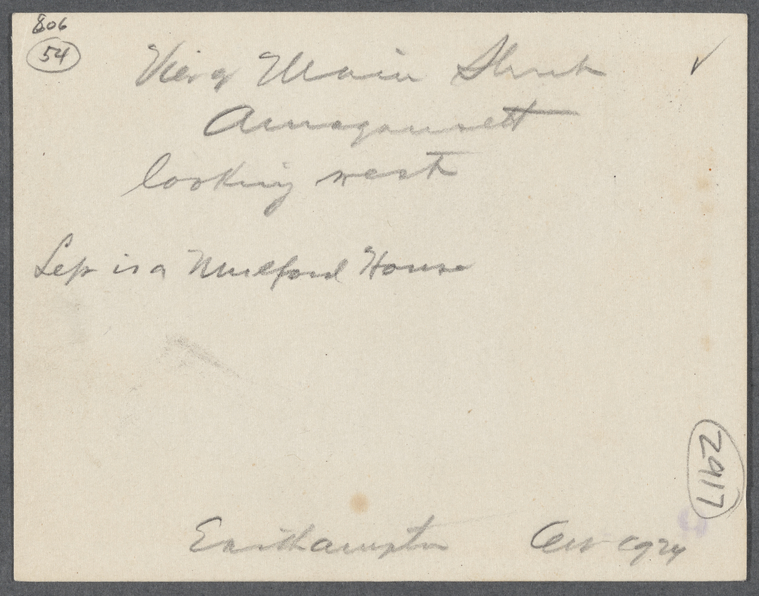 806
54
View of Main Street
Amagansett
looking west
Left is a Mulford House
2917
Easthampton